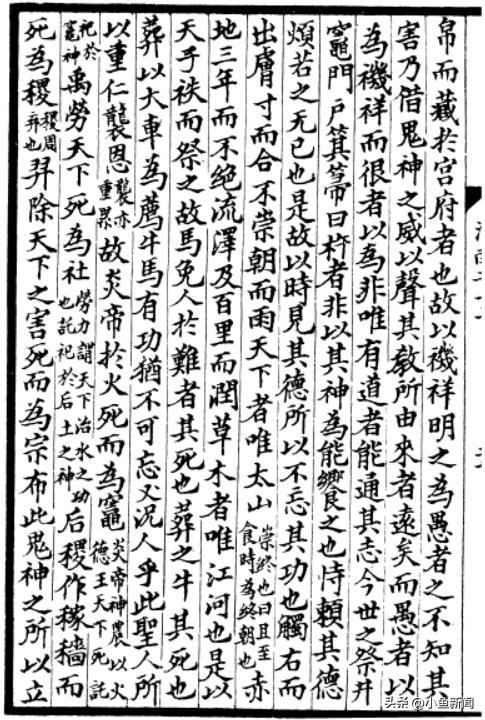 帛而藏於宫府者也故以禨祥明之為愚者之不知其
害乃借鬼神之威以聲其教所由來者遠矣而愚者以
為禨祥而很者以為非唯有道者能通其志今世之祭井
竈門戶箕箒曰杵者非以其神為能饗之也恃賴其德
煩若之无已也是故以時見其德所以不忘其功也觸右而
出膚寸而合不崇朝而雨天下者唯太山崇終也日旦至食時為終朝也赤
地三年而不絕流澤及百里而潤草木者唯江河也是以
天子秩而祭之故馬免人於難者其死也葬之牛其死也
葬以大車為薦牛馬有功猶不可忘又況人乎此聖人所
以重仁襲恩襲亦重累故炎帝於火死而為竈炎帝神農以火德王天下死託
祀於竈神禹勞天下死為社勞力謂天下治水之功也託祀於后土之神后稷作稼穡而
死為稷稷周弃也羿除天下之害死而為宗布此鬼神之所以立
头条 @小鱼新闻